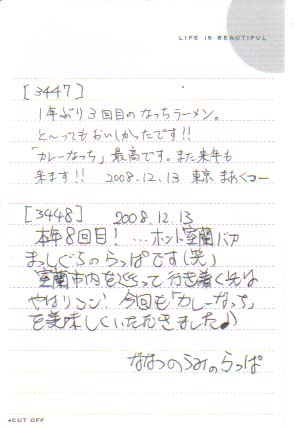 LIFE IS BEAUTIFUL
[3447]
1年ぶり3回目のなっちラーメン。
と〜ってもおいしかったです!!
「カレーなっち」最高です。また来年も
来ます!! 2008.12.13 東京 まあくつー
[3448] 2008.12.13
本年8回目! …ホント室蘭バカ
まっしぐらのらっぱです(笑)
室蘭市内をめぐって行き着く先は
やはりココ! 今回も「カレーなっち」
を美味しくいただきました♪)
ななつのうみのらっぱ
◂CUT OFF